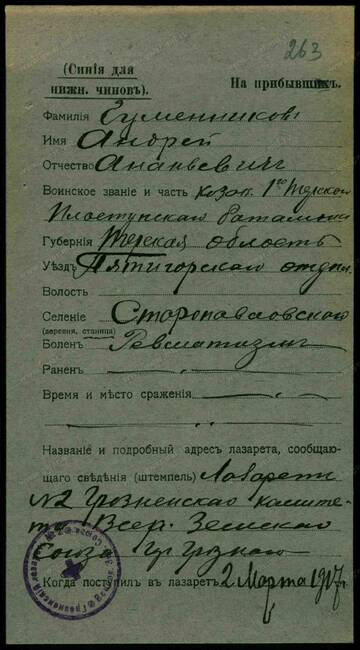 263
(Синія для
нижн. чиновъ).
На прибывшихъ.
Фамилія Гуменниковъ
Имя Андрей
Отчество Ананьевичъ
Воинское званіе и часть козак. 1го Терскаго
Пластунскаго баталіона
Губернія Терская область
Уѣздъ Пятигорскаго отдѣл.
Волость
Селеніе Старопавловской
(деревня, станица)
Боленъ Ревматизмъ
Раненъ — „ —
Время и мѣсто сраженія —
— „ — „ —
Названіе и подробный адресъ лазарета, сообщаю-
щаго свѣдѣнія (штемпель) Лазаретъ
№2 Грозненскаго комите-
та Всер. Земскаго
Союза гр. Грозный
Когда поступилъ въ лазаретъ 2 Марта 1917 г.